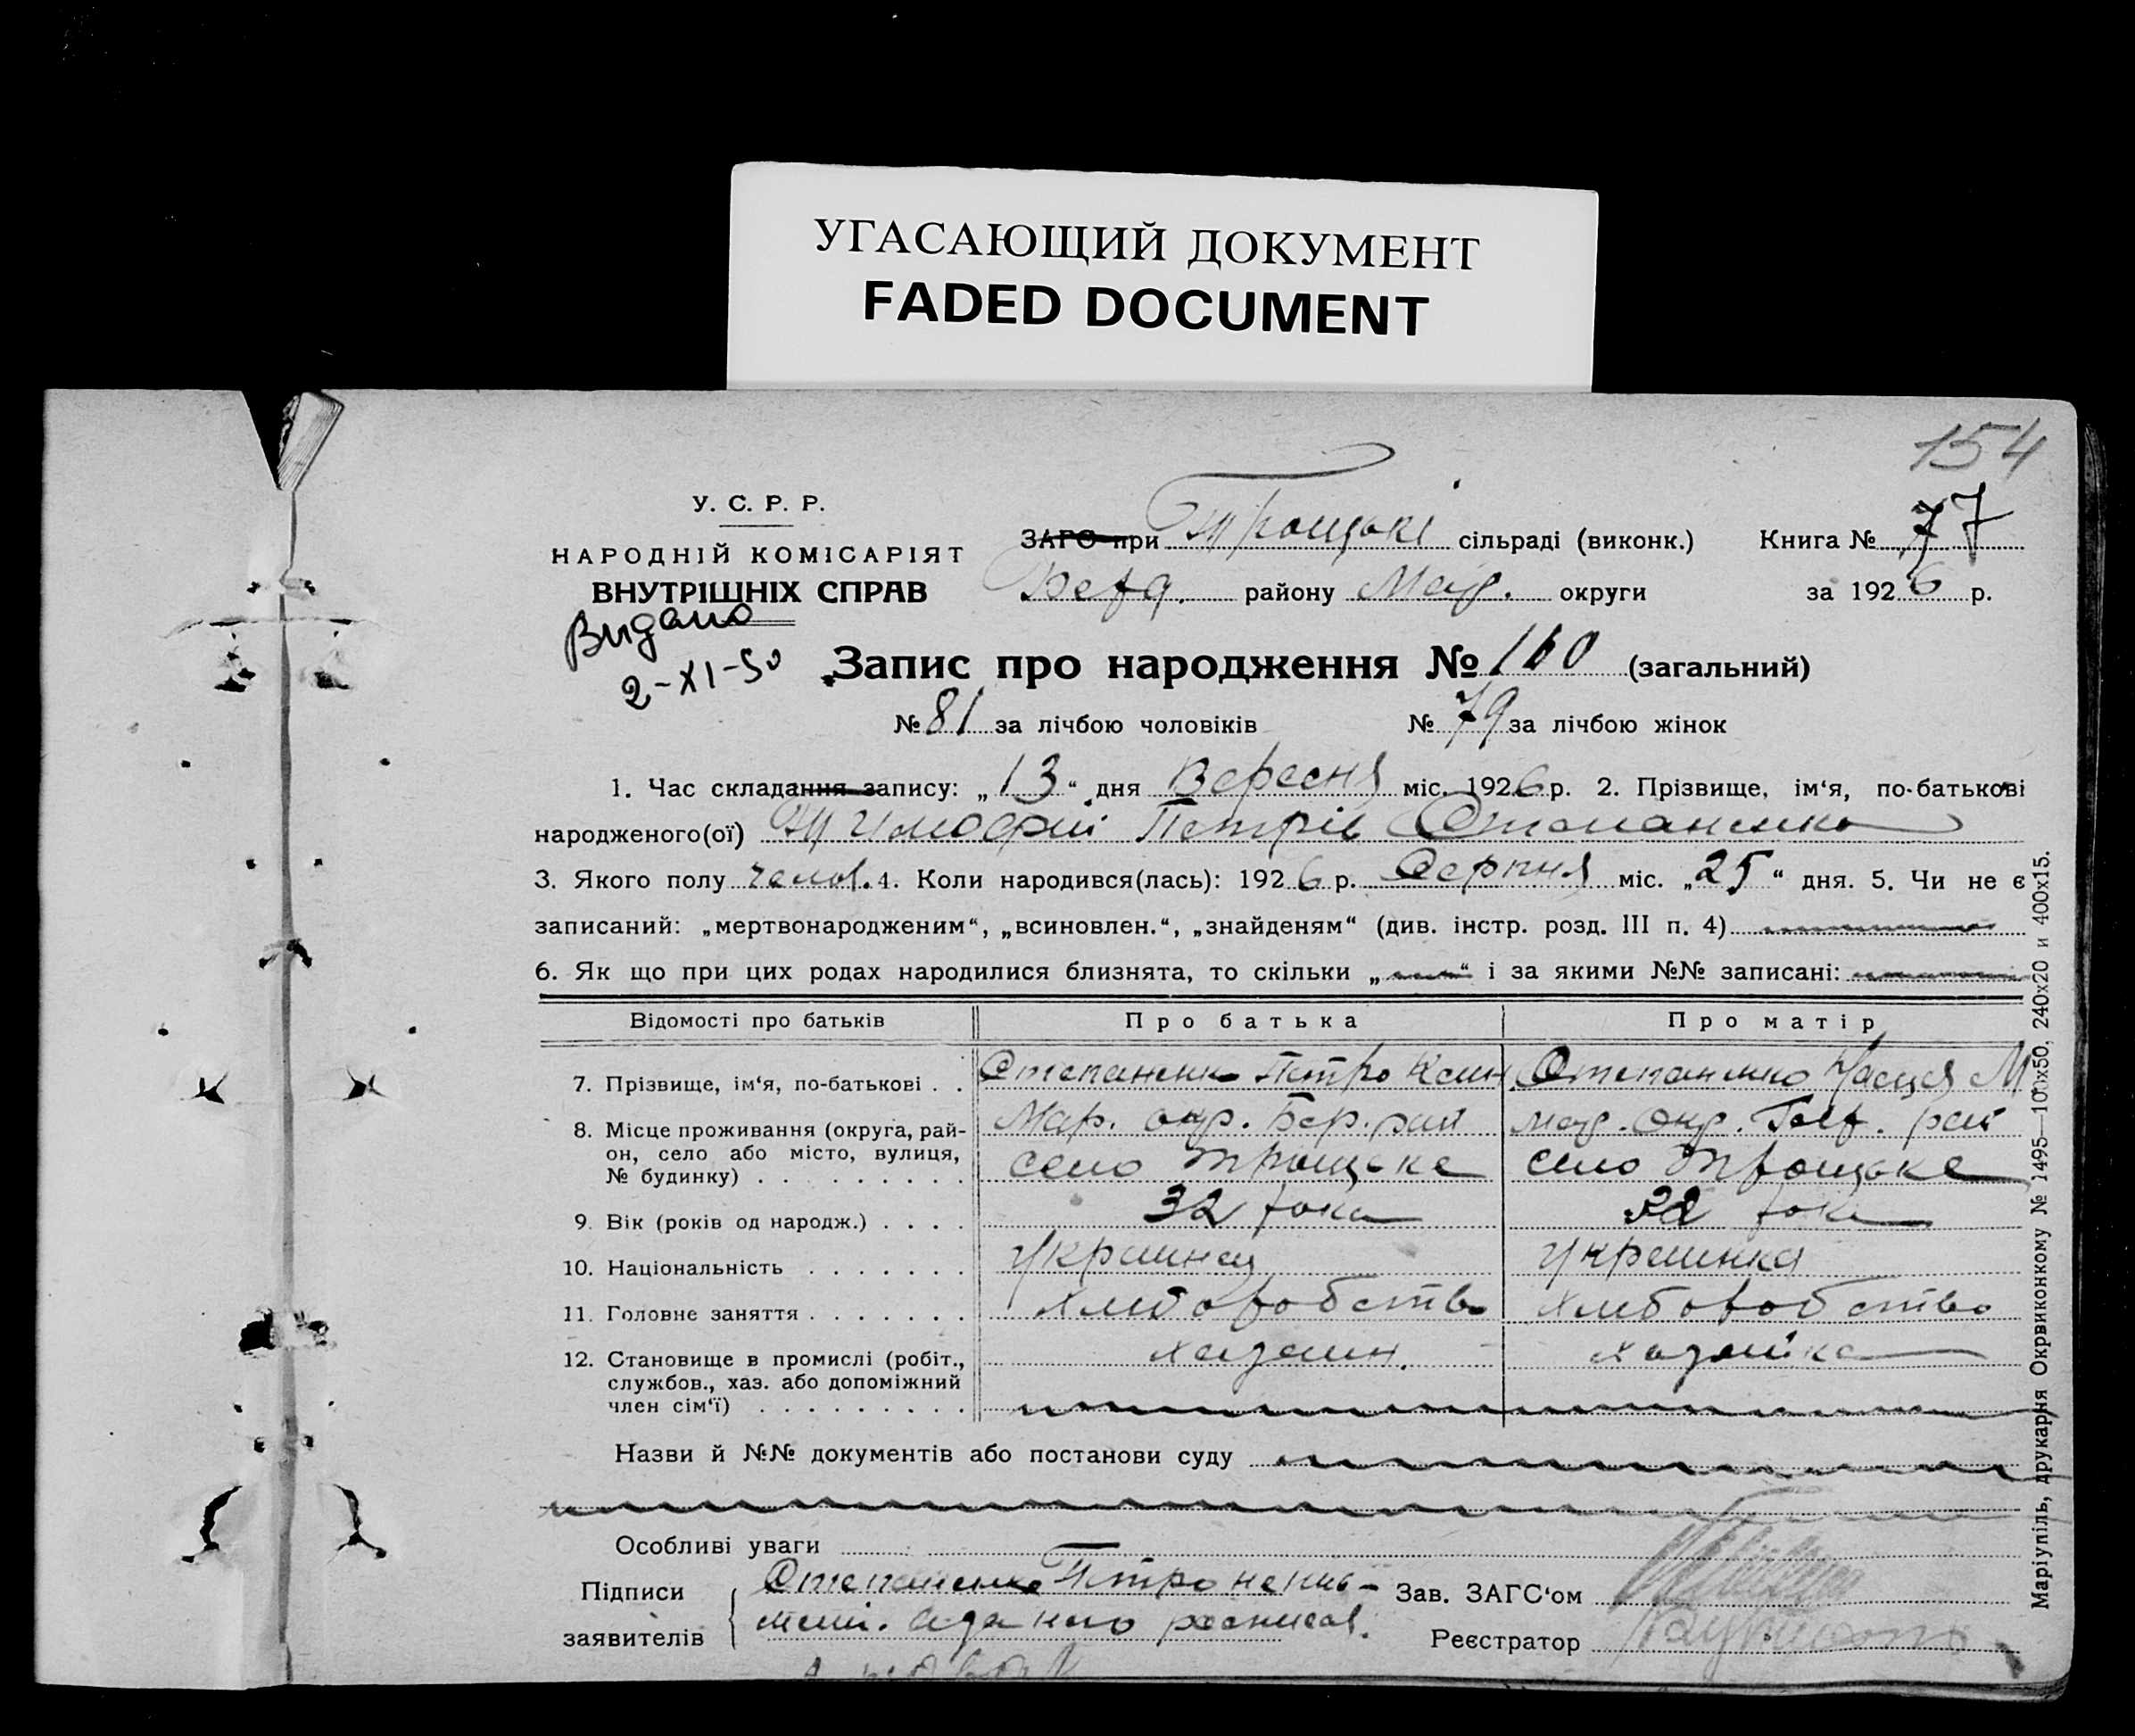 УГАСАЮЩИЙ ДОКУМЕНТ
FADED DOCUMENT
154
У. С. Р. Р.
НАРОДНІЙ КОМІСАРІЯТ
ВНУТРІШНІХ СПРАВ
Видано
2-XI-50
ЗАГС при Троцькі сільраді (виконк.) Книга № 77
району Мар. округи за 1926 р.
Запис про народження № 160 (загальний)
№ 81 за лічбою чоловіків № 79 за лічбою жінок
1. Час складання запису: „13“ дня Вересня міс. 1926 р. 2. Прізвище, ім‘я, по-батькові
народженого(ої) Тимофій Петрів Степаненко
3. Якого полу 4. Коли народився(лась): 1926 р. Серпня міс. „25“ дня. 5. Чи не є
записаний: „мертвонародженим“, „всиновлен.“, „знайденям“ (див. інстр. розд. III п. 4)
6. Як що при цих родах народилися близнята, то скільки „ “ і за якими №№ записані:
Відомості про батьків Про батька Про матір
7. Прізвище, ім‘я, по-батькові . . Степаненко Петро Степаненко М
8. Місце проживання (округа, рай-
он, село або місто, вулиця,
№ будинку) . . . . . . . . .
Мар. окр. Бер. рай Мар. Окр. рай
село Троцьке село Троцьке
9. Вік (років од народж.) . . . . 32 роки роки
10. Національність . . . . . . . Українец Українка
11. Головне заняття . . . . . . . Хліборобство Хліборобство
12. Становище в промислі (робіт.,
службов., хаз. або допоміжний
член сім‘ї) . . . . . . . . .
хазяин. хазяйка
Назви й №№ документів або постанови суду
Особливі уваги
Підписи
заявителів
Степаненко Петро непис-
росписал.
Зав. ЗАГС‘ом
Реєстратор
Маріупіль, друкарня Окрвиконкому № 1495—100х50, 240х20 и 400х15.